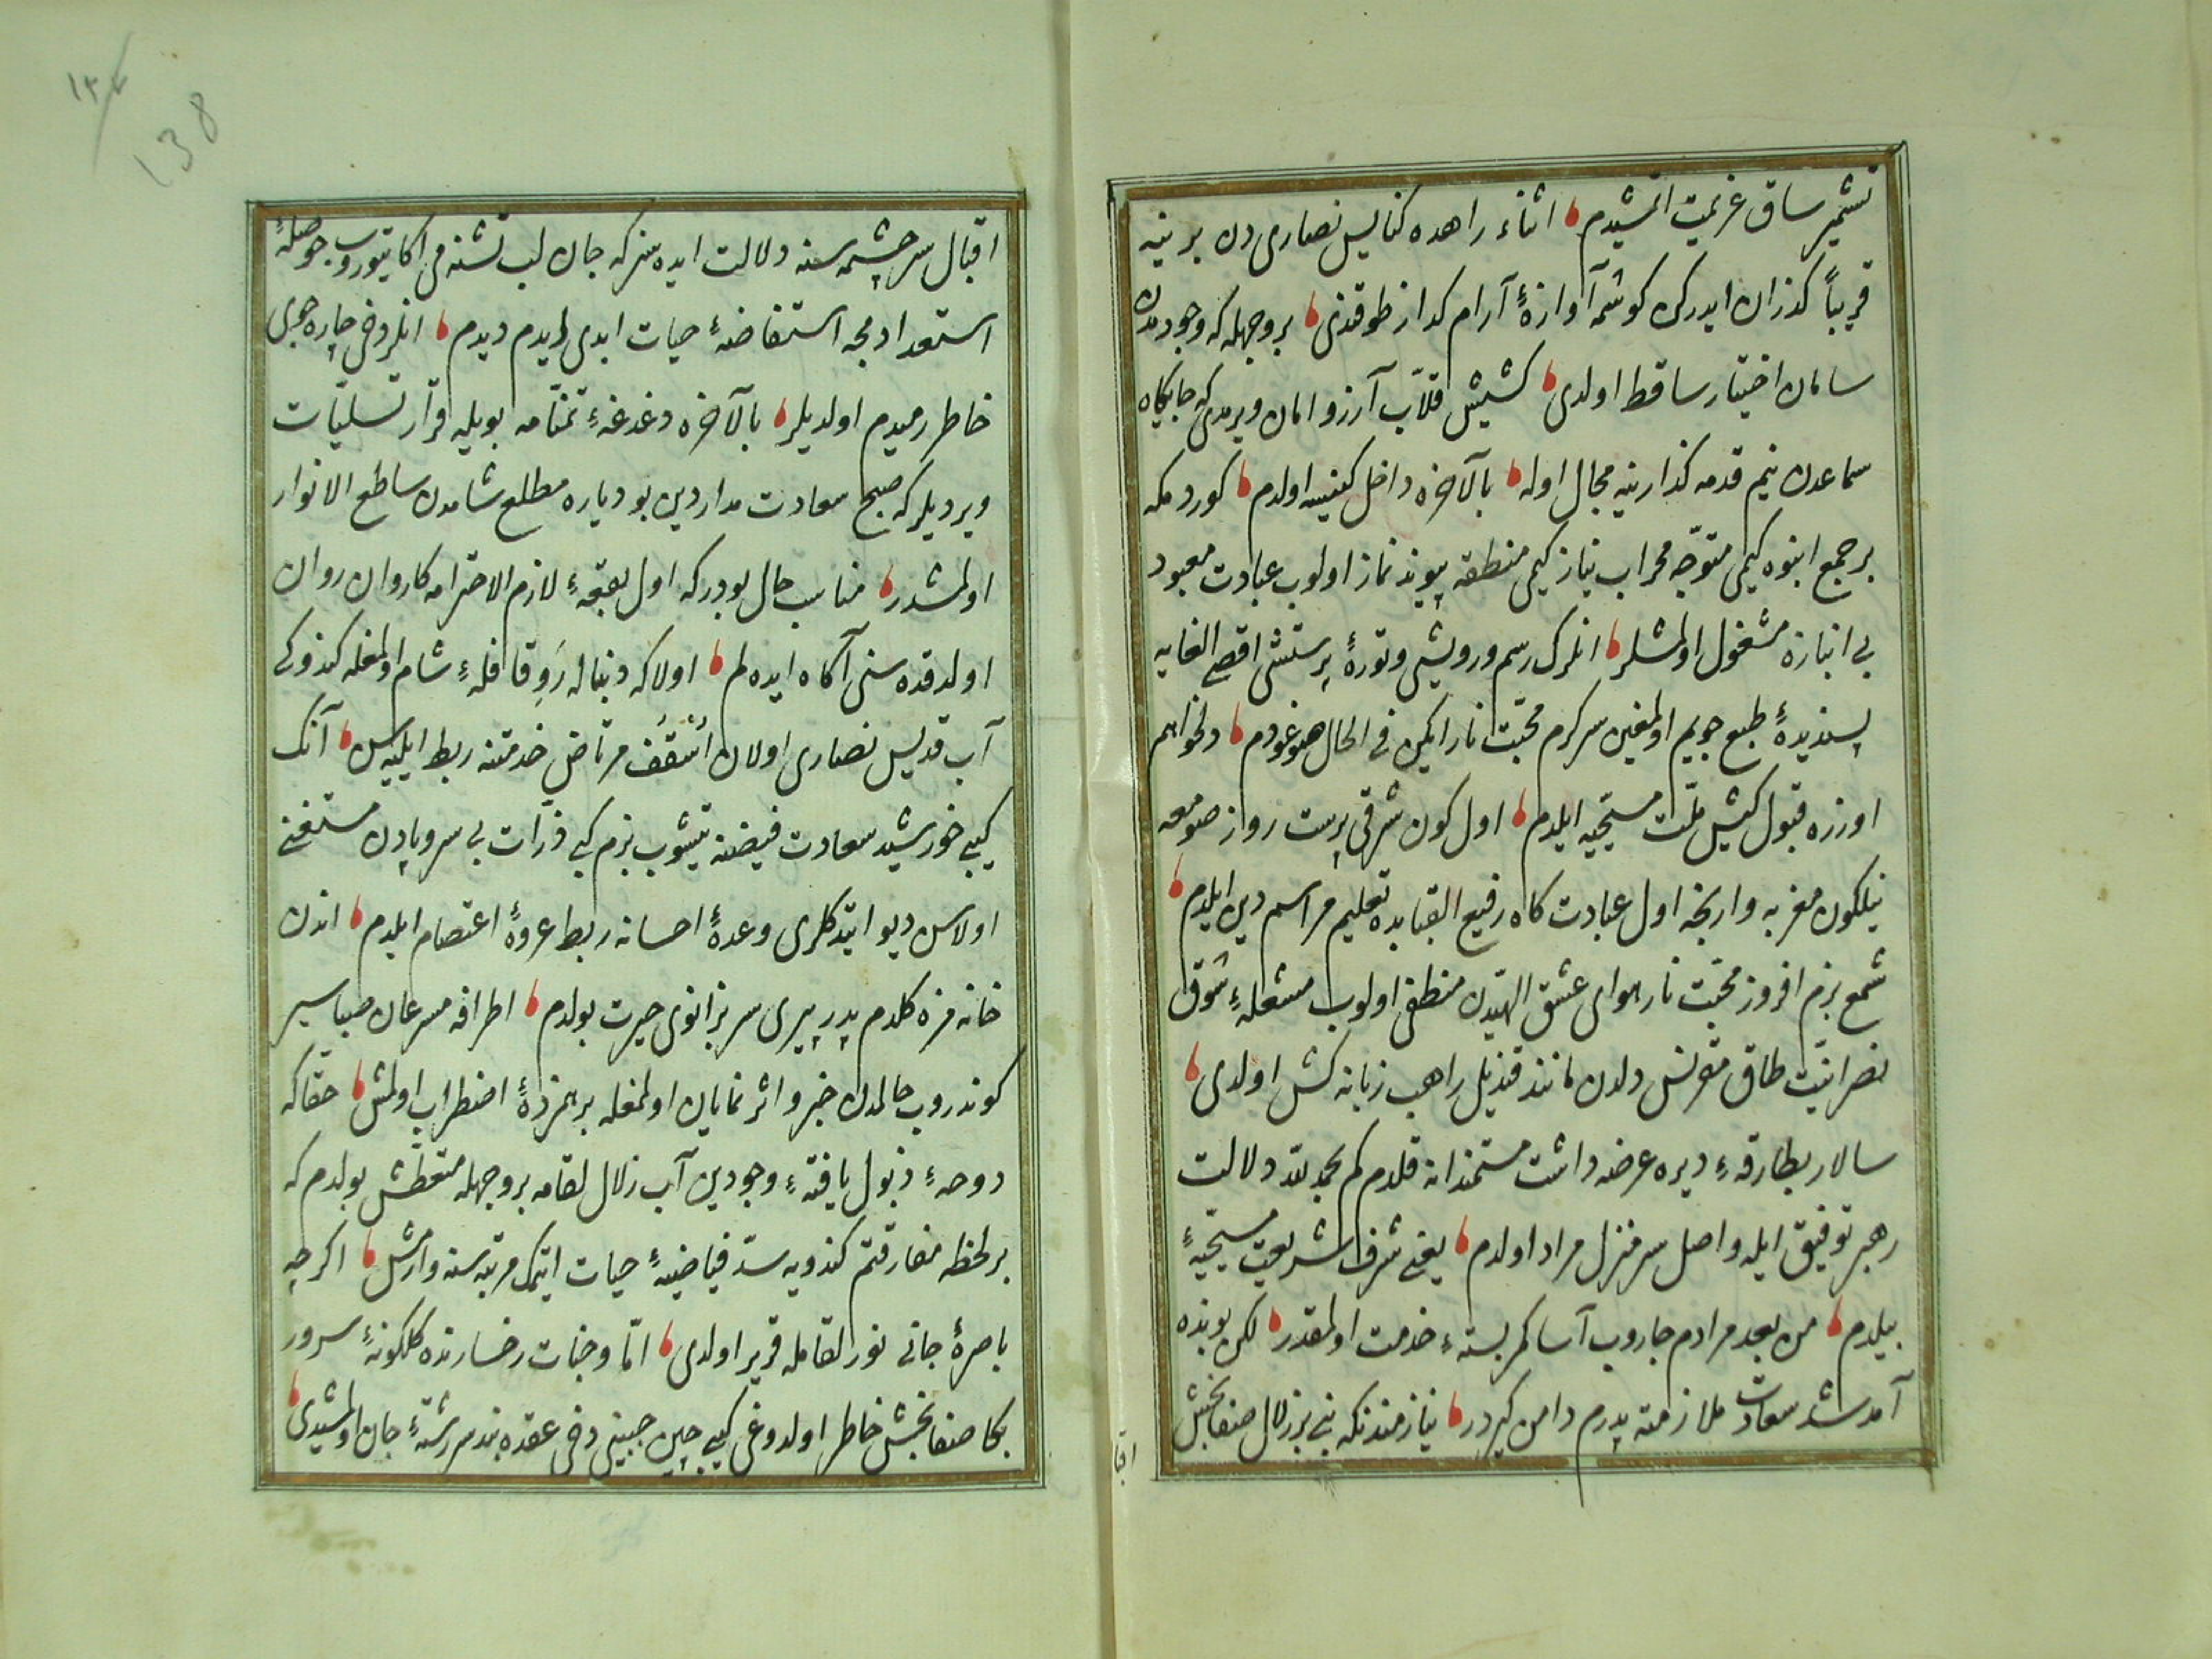 تشمیر ساق عزیمت اتمشیدم اثناء راهده کنایس نصاری دن برینه
قریباً کذران ایدرکن کوشمه آوازهٔ آرام کداز طوقندی بر وجهله که وجودمدن
سامان اختیار ساقط اولدی کشیش قلاب آرزو امان ویرمدی که جایکاه
سماعدن نیم قدمه کذارینه مجال اوله بالآخره داخل کنیسه اولدم کوردمکه
بر جمع انبوه کیمی متوجه محراب نیاز کیمی منطقه پیوند نماز اولوب عبادت معبود
بی انبازه مشغول اولمشلر انلرک رسم و رویشی و تورهٔ پرستشی اقصی الغایه
پسندیدهٔ طبع جویم اولمغین سرکرم محبت نار ایکن فی الحال دلخواهم
اوزره قبول کیش ملت مسیحیه ایلدم اول کون شرقی پرست رواز صومعه
نیلکون مغربه وارنجه اول عبادت کاه رفیع القبابده تعلیم مراسم دین ایلدم
شمع بزم افروز محبت نار هوای عشق الهیدن منطفی اولوب مشعلهٔ شوق
نصرانیت طاق مقرنس دلدن مانند قندیل راهب زبانه کش اولدی
سالار بطارقهٔ دیره عرضه داشت مستمندانه قلدم کم بحمد لله دلالت
رهبر توفیق ایله واصل سر منزل مراد اولدم یعنی شرف شریعت مسیحیهٔ
بیلدم من بعد مرادم جاروب آسا کمر بستهٔ خدمت اولمقدر لکن بونده
آمد شد سعادت ملازمته پدرم دامن کیردر نیازمندنکه بنی بر زلال صفابخش
اقبا
اقبال سرچشمه سنه دلالت ایده سز که جان لب تشنه می اکا یتوروب حوصلهٔ
استعدادمجه استفاضهٔ حیات ابدی ایدم دیدم انلر دخی چاره جوی
خاطر رمیدم اولدیلر بالآخره دغدغهٔ تمنامه بویله قرار تسلیات
ویردیلر که صبح سعادت مدار دین بو دیاره مطلع شامدن ساطع الانوار
اولمشدر مناسب حال بودر که اول بقعهٔ لازم الاحترامه کاروان روان
اولدقده سنی آکاه ایده لم اولا که دنباله رو قافلهٔ شام اولمغله کندوکی
آب قدیس نصاری اولان اسقف مرتاض خدمتنه ربط ایلیه سن آنک
کیبی خورشید سعادت فیضنه یتیشوب بزم کبی ذرات بی سروپادن مستغنی
اولاسن دیو ایتدکلری وعدهٔ احسانه ربط عروهٔ اعتصام ایلدم اندن
خانه مزه کلدم پدر پیری سر بزانوی حیرت بولدم اطرافه مسرعان صبا سیر
کوندروب حالمدن خبر و اثر نمایان اولمغله برهمزدهٔ اضطراب اولمش حقا که
دوحهٔ ذبول یافتهٔ وجودین آب زلال لقامه بر وجهله متعطش بولدم که
بر لحظه مفارقتم کندویه سد فیاضیهٔ حیات ایتمک مرتبه سنه وارمش اکرچه
باصرهٔ جانی نور لقامله قریر اولدی اما وجنات رخسارنده کلکونهٔ سرور
بکا صفابخش خاطر اولدوغی کیبی چین جبینی دخی عقده بند سر رشتهٔ جان اولمشیدی
۱۳۷
138